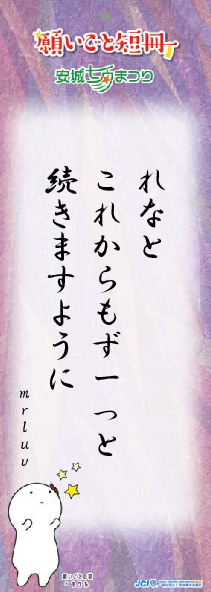 願いごと短冊
安城七夕まつり
れなと
これからもずーっと
続きますように
mrluv
JCI